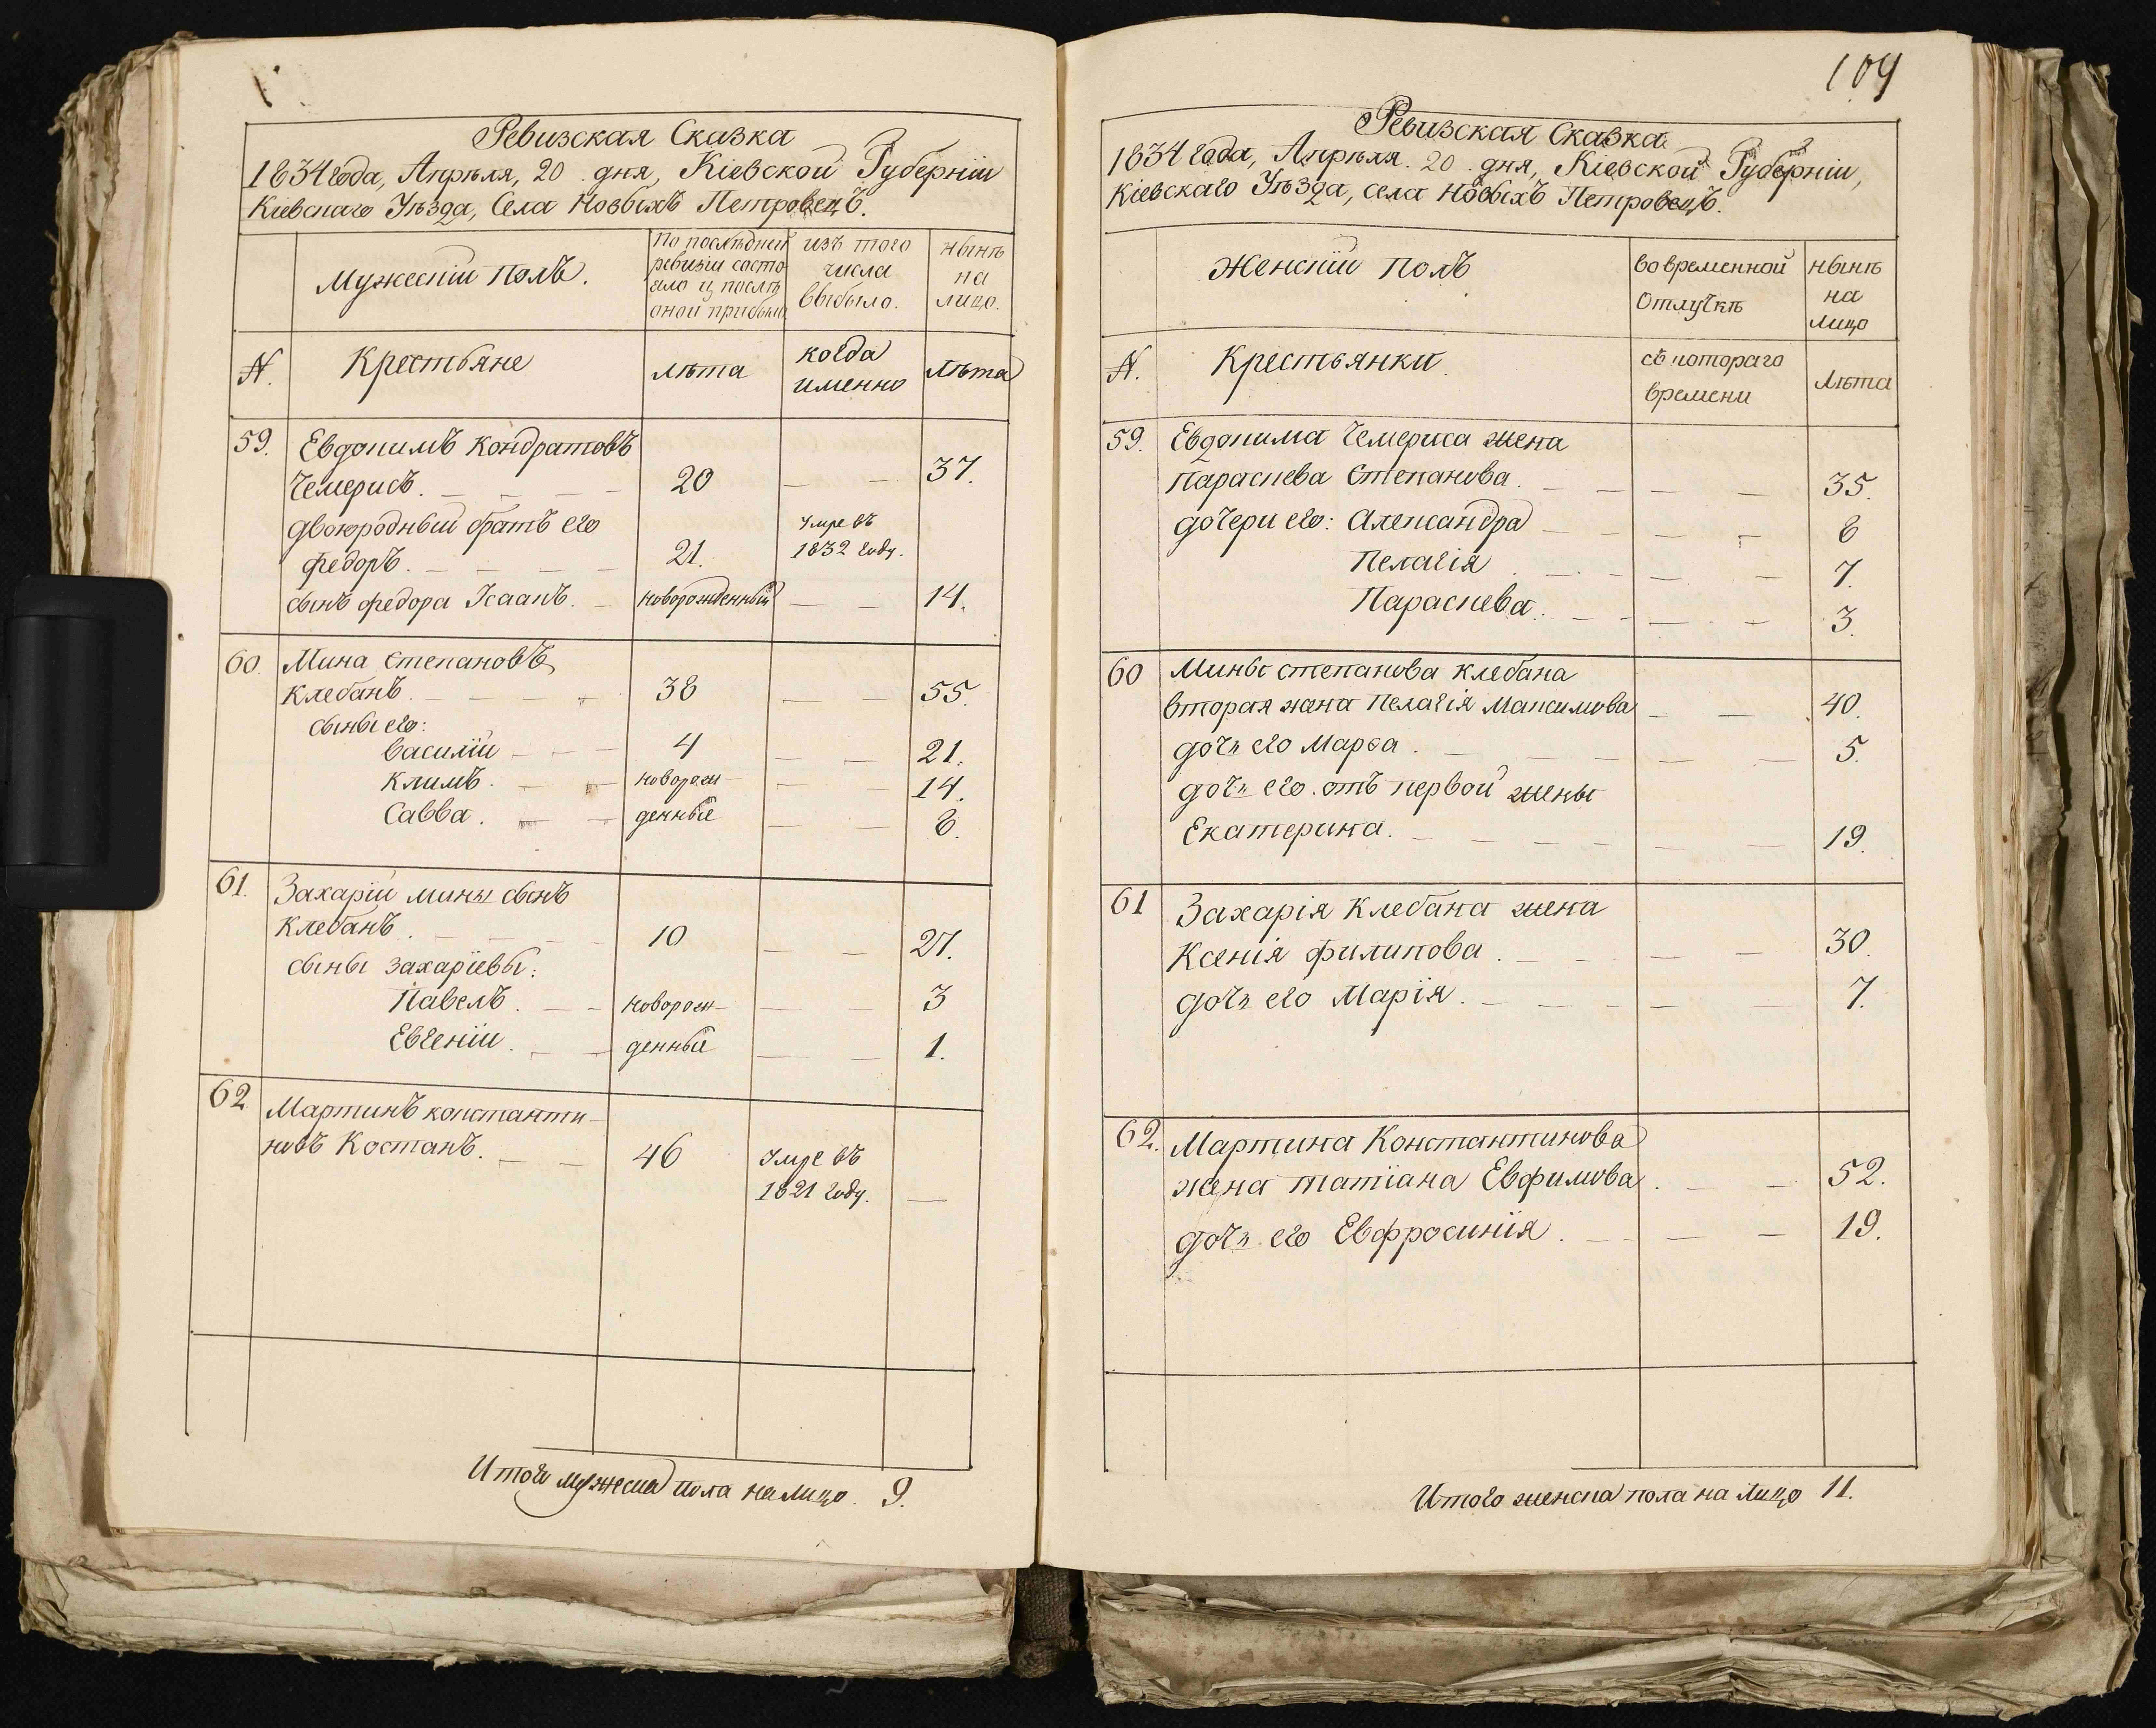 Ревизская Сказка
1834 года, Апрѣля, 20 . дня, Кіевской Губерніи
Кіевскаго Уѣзда, Села Новыхъ Петровецъ.
Мужескій полъ.
По послѣдней
ревизіи состо
яло и послѣ
оной прибыло
изъ того
числа
выбыло.
нынѣ
на
лицо.
N.
Крестьяне
лѣта
когда
именно
Лѣта
59.
Евдокимъ Кондратовъ
Чемерисъ. 20 37.
двоюродный братъ его
Федоръ. 21. Умре въ
1832 году.
сынъ Федора Исаакъ. новорожденный 14.
60. Мина Степановъ
Клебанъ. 38 55.
сыны его:
Василій 4 21.
Климъ. новорож- 14.
Савва. денные 8.
61. Захарій Мины сынъ
Клебанъ. 10 27.
сыны Захаріевы:
Павелъ. новорож- 3
Евгеній. денные 1.
62 Мартинъ Константи-
новъ Костанъ. 46 Умре въ
1821 году.
Итого мужеска пола на лицо. 9.
104
Ревизская Сказка
1834 Года, Апрѣля. 20 . дня, Кіевской Губерніи,
Кіевскаго Уѣзда, села Новыхъ Петровецъ.
Женскій полъ
во временной
отлучкѣ
нынѣ
на
лицо
N.
Крестьянки.
съ котораго
времени
Лѣта
59. Евдокима Чемериса жена
Параскева Степанова. 35.
дочери его: Александра 8
Пелагія 7.
Параскева. 3.
60 Мины степанова Клебана
вторая жена Пелагія Максимова 40.
дочь его Марѳа. 5.
дочь его. отъ первой жены
Екатерина. 19.
61 Захарія Клебана жена
Ксенія Филипова. 30.
дочь его Марія. 7.
62. Мартина Константинова
жена Татіана Евфимова. 52.
дочь его Евфросинія. 19.
Итого женска пола на лицо 11.